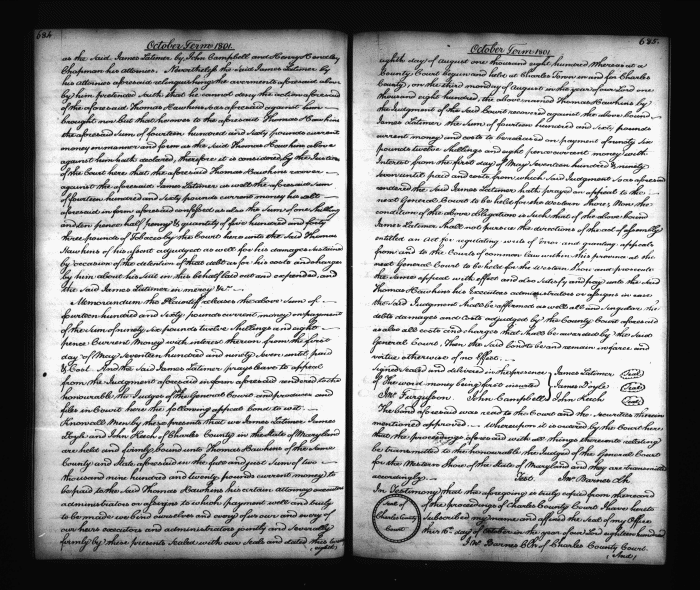 684.
October Term 1801
as the said James Latimer by John Campbell and Henry Henley
Chapman his attornies. Nevertheless the said James Latimer by
his attornies aforesaid relinquishing the averments aforesaid above
by him pretended saith that he cannot deny the action aforesaid
of the aforesaid Thomas Hawkins, as aforesaid against him
brought nor but that he owes to the aforesaid Thomas Hawkins
the aforesaid sum of fourteen hundred and sixty pounds current
money in manner and form as the said Thomas Hawkins above
against him hath declared, therefore it is considered by the Justices
of the Court here that the aforesaid Thomas Hawkins recover
against the aforesaid James Latimer as well the aforesaid sum
of fourteen hundred and sixty pounds current money his debt
aforesaid in form aforesaid confessed as also the sum of one shilling
and ten pence half penny & quantity of two hundred and forty
three pounds of Tobacco by the Court here unto the said Thomas
Hawkins of his assent adjudged as well for his damages sustained
by occasion of the detention of that debt as for his costs and charges
by him about his suit in this behalf laid out and expended, and
the said James Latimer in mercy &c.
Memorandum the Plaintiff releases the above Sum of
fourteen hundred and sixty pounds current money on payment
of the Sum of ninety six pounds twelve shillings and eight
pence Current Money with interest thereon from the first
day of May seventeen hundred and ninety seven until paid
& Cost. And the said James Latimer prays leave to appeal
from the Judgment aforesaid in form aforesaid rendered to the
honourable the Judges of the General Court and produces and
files in Court here the following appeal bond to wit.
Know all Men by these presents that we James Latimer James
Doyle and John Keech of Charles County in the State of Maryland
are held and firmly bound unto Thomas Hawkins of the same
County and State aforesaid in the full and just Sum of two
thousand nine hundred and twenty pounds current money to
be paid to the said Thomas Hawkins his certain attorney executors
administrators or assigns to which payment well and truly
to be made we bind ourselves and every of us our and every of
our heirs executors and administrators jointly and severally
firmly by these presents Sealed with our Seals and dated this twenty
eighth
685.
October Term 1801
eighth day of August one thousand eight hundred Whereas at a
County Court begun and held at Charles Town in and for Charles
County, on the third monday of August in the year of our Lord one
thousand eight hundred, the above named Thomas Hawkins by
the Judgment of the said Court recovered against the above bound
James Latimer, the Sum of fourteen hundred and Sixty pounds
current money and costs to be released on payment of ninety six
pounds twelve shillings and eight pence current money with
Interest from the first day of May seventeen hundred & ninety
seven until paid and costs from which said Judgment so as aforesaid
rendered the said James Latimer hath prayed an appeal to the
next General Court to be held for the Western Shore, Now the
condition of the above obligation is such that if the above bound
James Latimer Shall not pursue the directions of the act of assembly
entitled an Act for regulating writs of error and granting appeals
from and to the Courts of common law within this province at the
next General Court to be held for the Western Shore and prosecute
the same appeal with effect and also satisfy and pay unto the said
Thomas Hawkins his Executors administrators or assigns in case
the said Judgment shall be affirmed as well all and singular the
debts damages and costs adjudged by the County Court aforesaid
as also all costs and charges that shall be awarded by the said
General Court. Then the said bond to be and remain in force and
virtue otherwise of no effect.
Signed sealed and delivered in the presence
of The word money being first inserted
Jno. Ferguson. John Campbell
James Latimer (Seal)
James Doyle (Seal)
John Keech (Seal)
The bond aforesaid was read to the Court and the securities therein
mentioned approved. Whereupon it is ordered by the Court here
that the proceedings aforesaid with all things thereunto relating
be transmitted to the honourable the Judges of the General Court
for the Western Shore of the State of Maryland and they are transmitted
accordingly. Test. Jno Barnes Clk
In Testimony that the aforegoing is truly copied from the record
of the proceedings of Charles County Court I have hereto
Subscribed my name and affixed the Seal of my Office
this 16th day of October in the year of our Lord eighteen hundred
Jno. Barnes Clk of Charles County Court.
Seal of
Charles County
Court